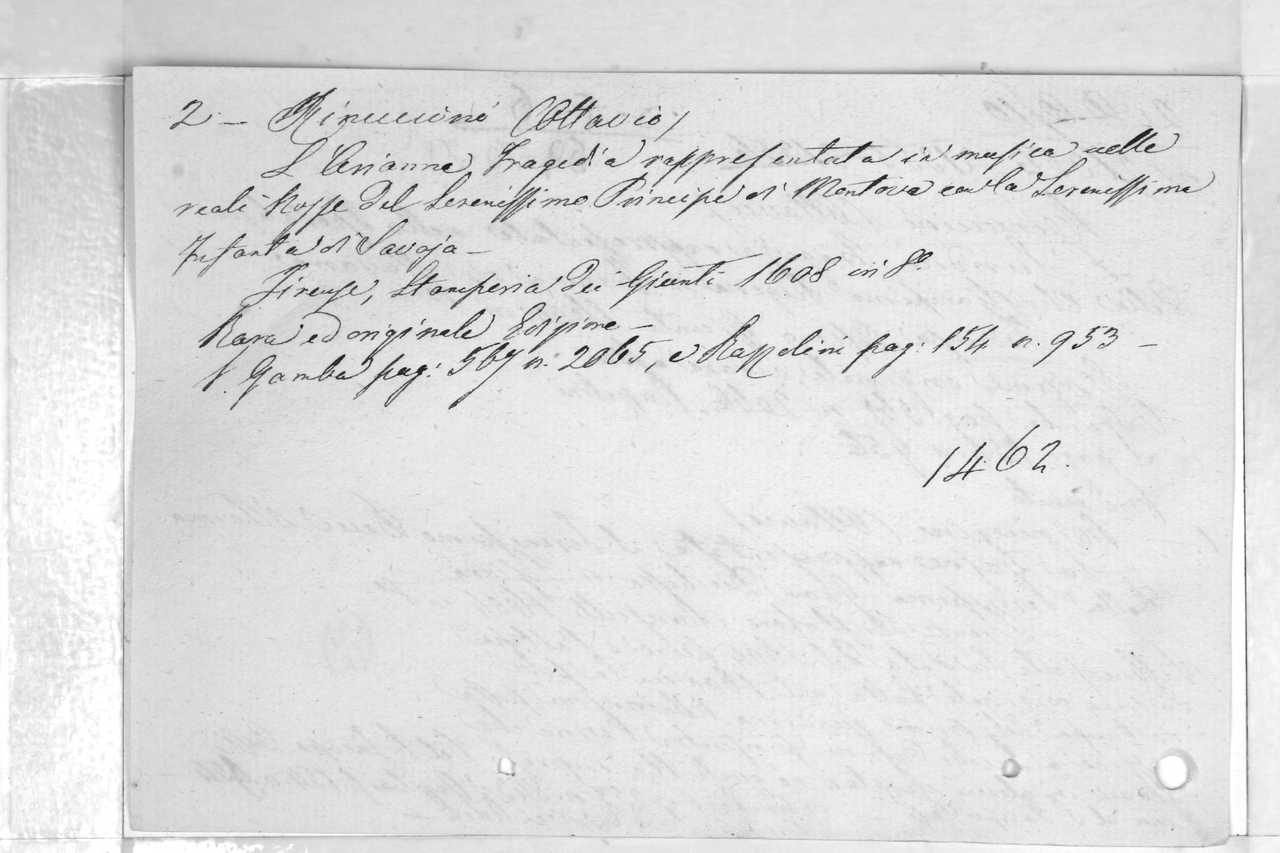 2 – Rinuccini (Ottavio)
L'Arianna Tragedia rappresentata in musica nelle
reali Nozze del Serenissimo Principe di Mantova con la Serenissima
Infanta di Savoja –
Firenze, Stamperia dei Giunti 1608 in 8°.
Rara ed originale Edizione –
V. Gamba pag: 567 n. 2065, e Razzolini pag: 154 n. 953 –
1462.